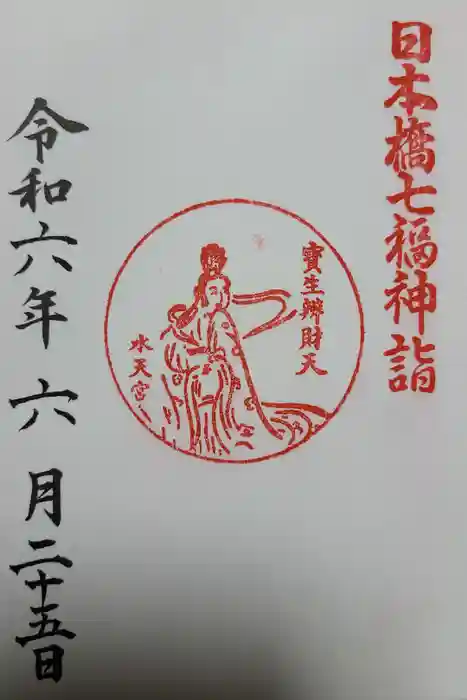 日本橋七福神詣
寶生辨財天
水天宮
令和六年六月二十五日